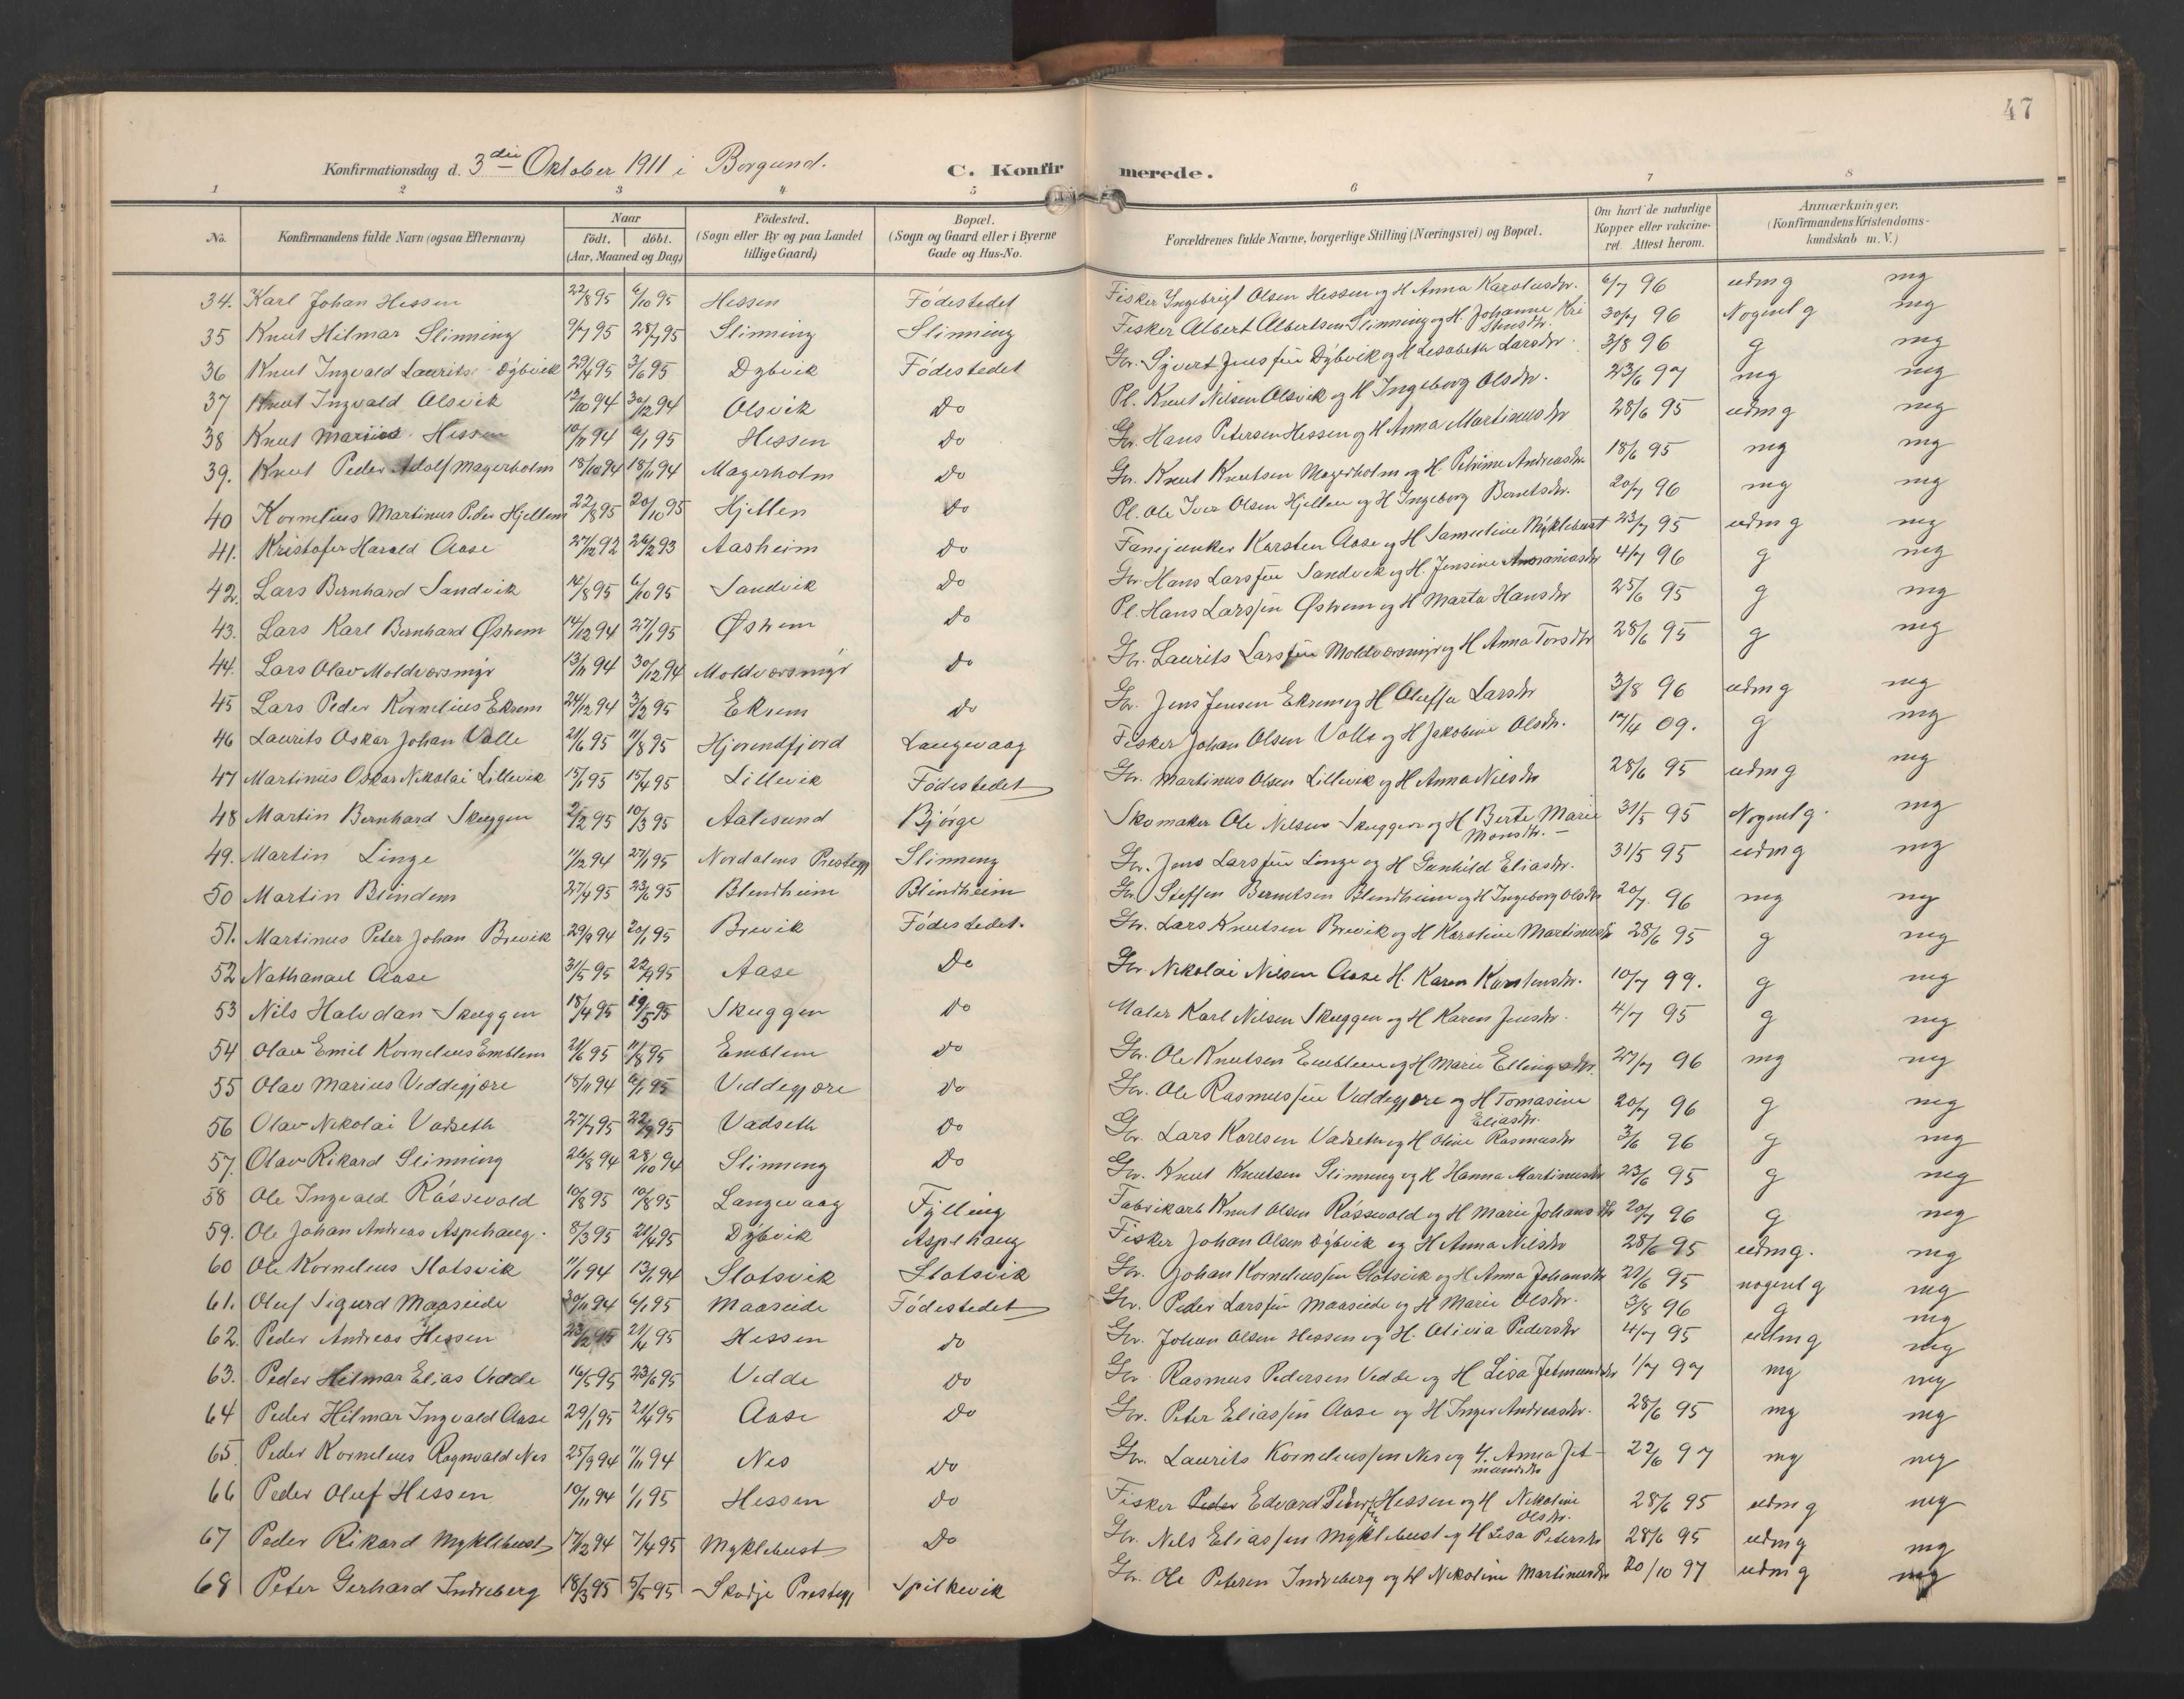 47
Konfirmationsdag d. 3die Oktober 1911 i Borgund.
C. Konfirmerede.
1 2 3 4 5 6 7 8
No. Konfirmandens fulde Navn (ogsaa Efternavn) Naar født. døbt. (Aar, Maaned og Dag) Födested. (Sogn eller By og paa Landet tillige Gaard) Bopæl. (Sogn og Gaard eller i Byerne Gade og Hus-No. Forældrenes fulde Navne, borgerlige Stilling (Næringsvei) og Bopæl. Om havt de naturlige Kopper eller vakcineret. Attest herom. Anmærkninger. (Konfirmandens Kristendomskundskab m. V.)
34. Karl Johan Hessen 22/8 95 6/10 95 Hessen Födestedet Fisker Ingebrigt Olsen Hessen og H Anna Karolusdr. 6/7 96 udm g mg
35 Knut Hilmar Slinning 9/7 95 28/7 95 Slinning Slinning Fisker Albert Albertsen Slinning og H. Johanne Kristinsdr. 30/7 96 Nogenl g mg
36 Knut Ingvald Laurits Dybvik 29/4 95 3/6 95 Dybvik Födestedet Gr. Syvert Jensen Dybvik og H Lisabeth Larsdr. 3/8 96 g mg
37 Knut Ingvald Olsvik 13/10 94 30/12 94 Olsvik Do Pl. Knut Nilsen Olsvik og H Ingeborg Olsdr. 23/6 97 mg mg
38 Knut Marius Hessen 10/11 94 6/1 95 Hessen Do Gr. Hans Petersen Hessen og H Anna Martinusdr 28/6 95 udm g mg
39. Knut Peder Adolf Magerholm 18/10 94 18/11 94 Magerholm Do Gr. Knut Knutsen Magerholm og H. Petrine Andreasdr. 18/6 95 mg mg
40 Kornelius Martinus Peder Hjellem 22/8 95 20/10 95 Hjellen Do Pl. Ole Iver Olsen Hjellen og H Ingeborg Berntsdr. 20/7 96 mg mg
41. Kristofer Harald Aase 27/12 92 26/2 93 Aasheim Do Fanejunker Karsten Aase og H Sameline Myklebust 23/7 95 udm g mg
42. Lars Bernhard Sandvik 14/8 95 6/10 95 Sandvik Do Gr. Hans Larssen Sandvik og H. Jensine Ananiasdr 4/7 96 g mg
43. Lars Karl Bernhard Østrem 14/12 94 27/1 95 Østrem Do Pl. Hans Larssen Østrem og H Marta Hansdr 25/6 95 g mg
44. Lars Olav Moldværsmyr 13/11 94 30/12 94 Moldværsmyr Do Gr. Laurits Larssen Moldværsmyr og H Anna Torsdr 28/6 95 g mg
45 Lars Peder Kornelius Ekrem 24/12 94 3/2 95 Ekrem Do Gr. Jens Jensen Ekrem og H Oluffa Larsdr 3/8 96 udm g mg
46 Laurits Oskar Johan Valle 21/6 95 11/8 95 Hjørendfjord Langevaag Fisker Johan Olsen Valle og H Jakobine Olsdr. 17/4 09. g mg
47 Martinus Oskar Nikolai Lillevik 15/1 95 15/4 95 Lillevik Födestedet Gr. Martinus Olsen Lillevik og H Anna Nilsdr 28/6 95 udm g mg
48 Martin Bernhard Skuggen 2/2 95 10/3 95 Aalesund Bjørge Skomaker Ole Nilsen Skuggen og H Berte Marie Monsdr. 31/5 95 Nogenl g. mg
49. Martin Linge 11/2 94 27/1 95 Nordalens Prestegj Slinning Gr. Jens Larssen Linge og H Gunhild Eliasdr. 31/5 95 udm g mg
50 Martin Blindem 27/4 95 23/6 95 Blindheim Blindheim Gr. Steffen Berntsen Blindheim og H Ingeborg Olsdr 20/7. 96 mg mg
51. Martinus Peter Johan Brevik 29/9 94 20/1 95 Brevik Födestedet. Gr. Lars Knutsen Brevik og H Karoline Martinusdr 28/6 95 g mg
52 Nathanael Aase 31/5 95 22/9 95 Aase Do Gr. Nikolai Nilsen Aase H. Karen Karstensdr. 10/7 99. g mg
53 Nils Halvdan Skuggen 18/4 95 19/5 95 Skuggen Do Maler Karl Nilsen Skuggen og H Karen Jensdr. 4/7 95 g mg
54 Olav Emil Kornelius Emblem 21/6 95 11/8 95 Emblem Do Gr. Ole Knutsen Emblem og H Marie Ellingsdr. 27/7 96 mg mg
55 Olav Marius Veddegjære 18/11 94 6/1 95 Veddegjære Do Gr. Ole Rasmussen Veddegjære og H Tomasine Eliasdr. 20/7 96 g mg
56 Olav Nikolai Vadseth 27/7 95 22/9 95 Vadseth Do Gr. Lars Karlsen Vadseth og H Oline Rasmusdr 3/6 96 g mg
57. Olav Rikard Slinning 26/8 94 28/10 94 Slinning Do Gr. Knut Knutsen Slinning og H Hanna Martinusdr 23/6 95 g mg
58 Ole Ingvald Røssevold 10/8 95 10/8 95 Langevaag Fylling Fabrikarb Knut Olsen Røssevold og H Marie Johansdr 20/7 96 g mg
59. Ole Johan Andreas Aspehaug. 8/3 95 21/4 95 Dybvik Aspehaug Fisker Johan Olsen Dybvik og H Anna Nilsdr 28/6 95 udm g. mg
60 Ole Kornelius Slotsvik 11/1 94 13/1 94 Slotsvik Slotsvik Gr. Johan Korneliussen Slotsvik og H Anna Johansdr 29/6 95 nogenl g mg
61. Oluf Sigurd Maaseide 30/11 94 6/1 95 Maaseide Födestedet Gr. Peder Larssen Maaseide og H Marie Olsdr. 3/8 96 g mg
62. Peder Andreas Hessen 23/2 95 21/4 95 Hessen Do Gr. Johan Olsen Hessen og H. Olivia Pedersdr 4/7 95 udm g mg
63. Peder Hilmar Elias Vedde 16/5 95 23/6 95 Vedde Do Gr. Rasmus Pedersen Vedde og H Lisa Jetmundsdr 1/7 97 mg mg
64 Peder Hilmar Ingvald Aase 29/1 95 21/4 95 Aase Do Gr. Peter Eliassen Aase og H Inger Andreasdr. 28/6 95 mg mg
65. Peder Kornelius Ragnvald Nes 25/9 94 1/11 94 Nes Do Gr. Laurits Korneliussen Nes og H. Anna Jetmundsdr 22/6 97 mg mg
66 Peder Oluf Hessen 10/11 94 1/1 95 Hessen Do Fisker Edvard Peders Hessen og H Nikoline Olsdr. 28/6 95 udm g mg
67 Peder Rikard Myklebust 17/12 94 7/4 95 Myklebust Do Gr. Nils Eliassen Myklebust og H Lisa Petersdr 28/6 95 udm g mg
68 Peter Gerhard Indreberg 18/3 95 5/5 95 Skodje Prestegj Spilkevik Gr. Ole Petersen Indreberg og H Nikoline Martinusdr 20/10 97 udm g mg